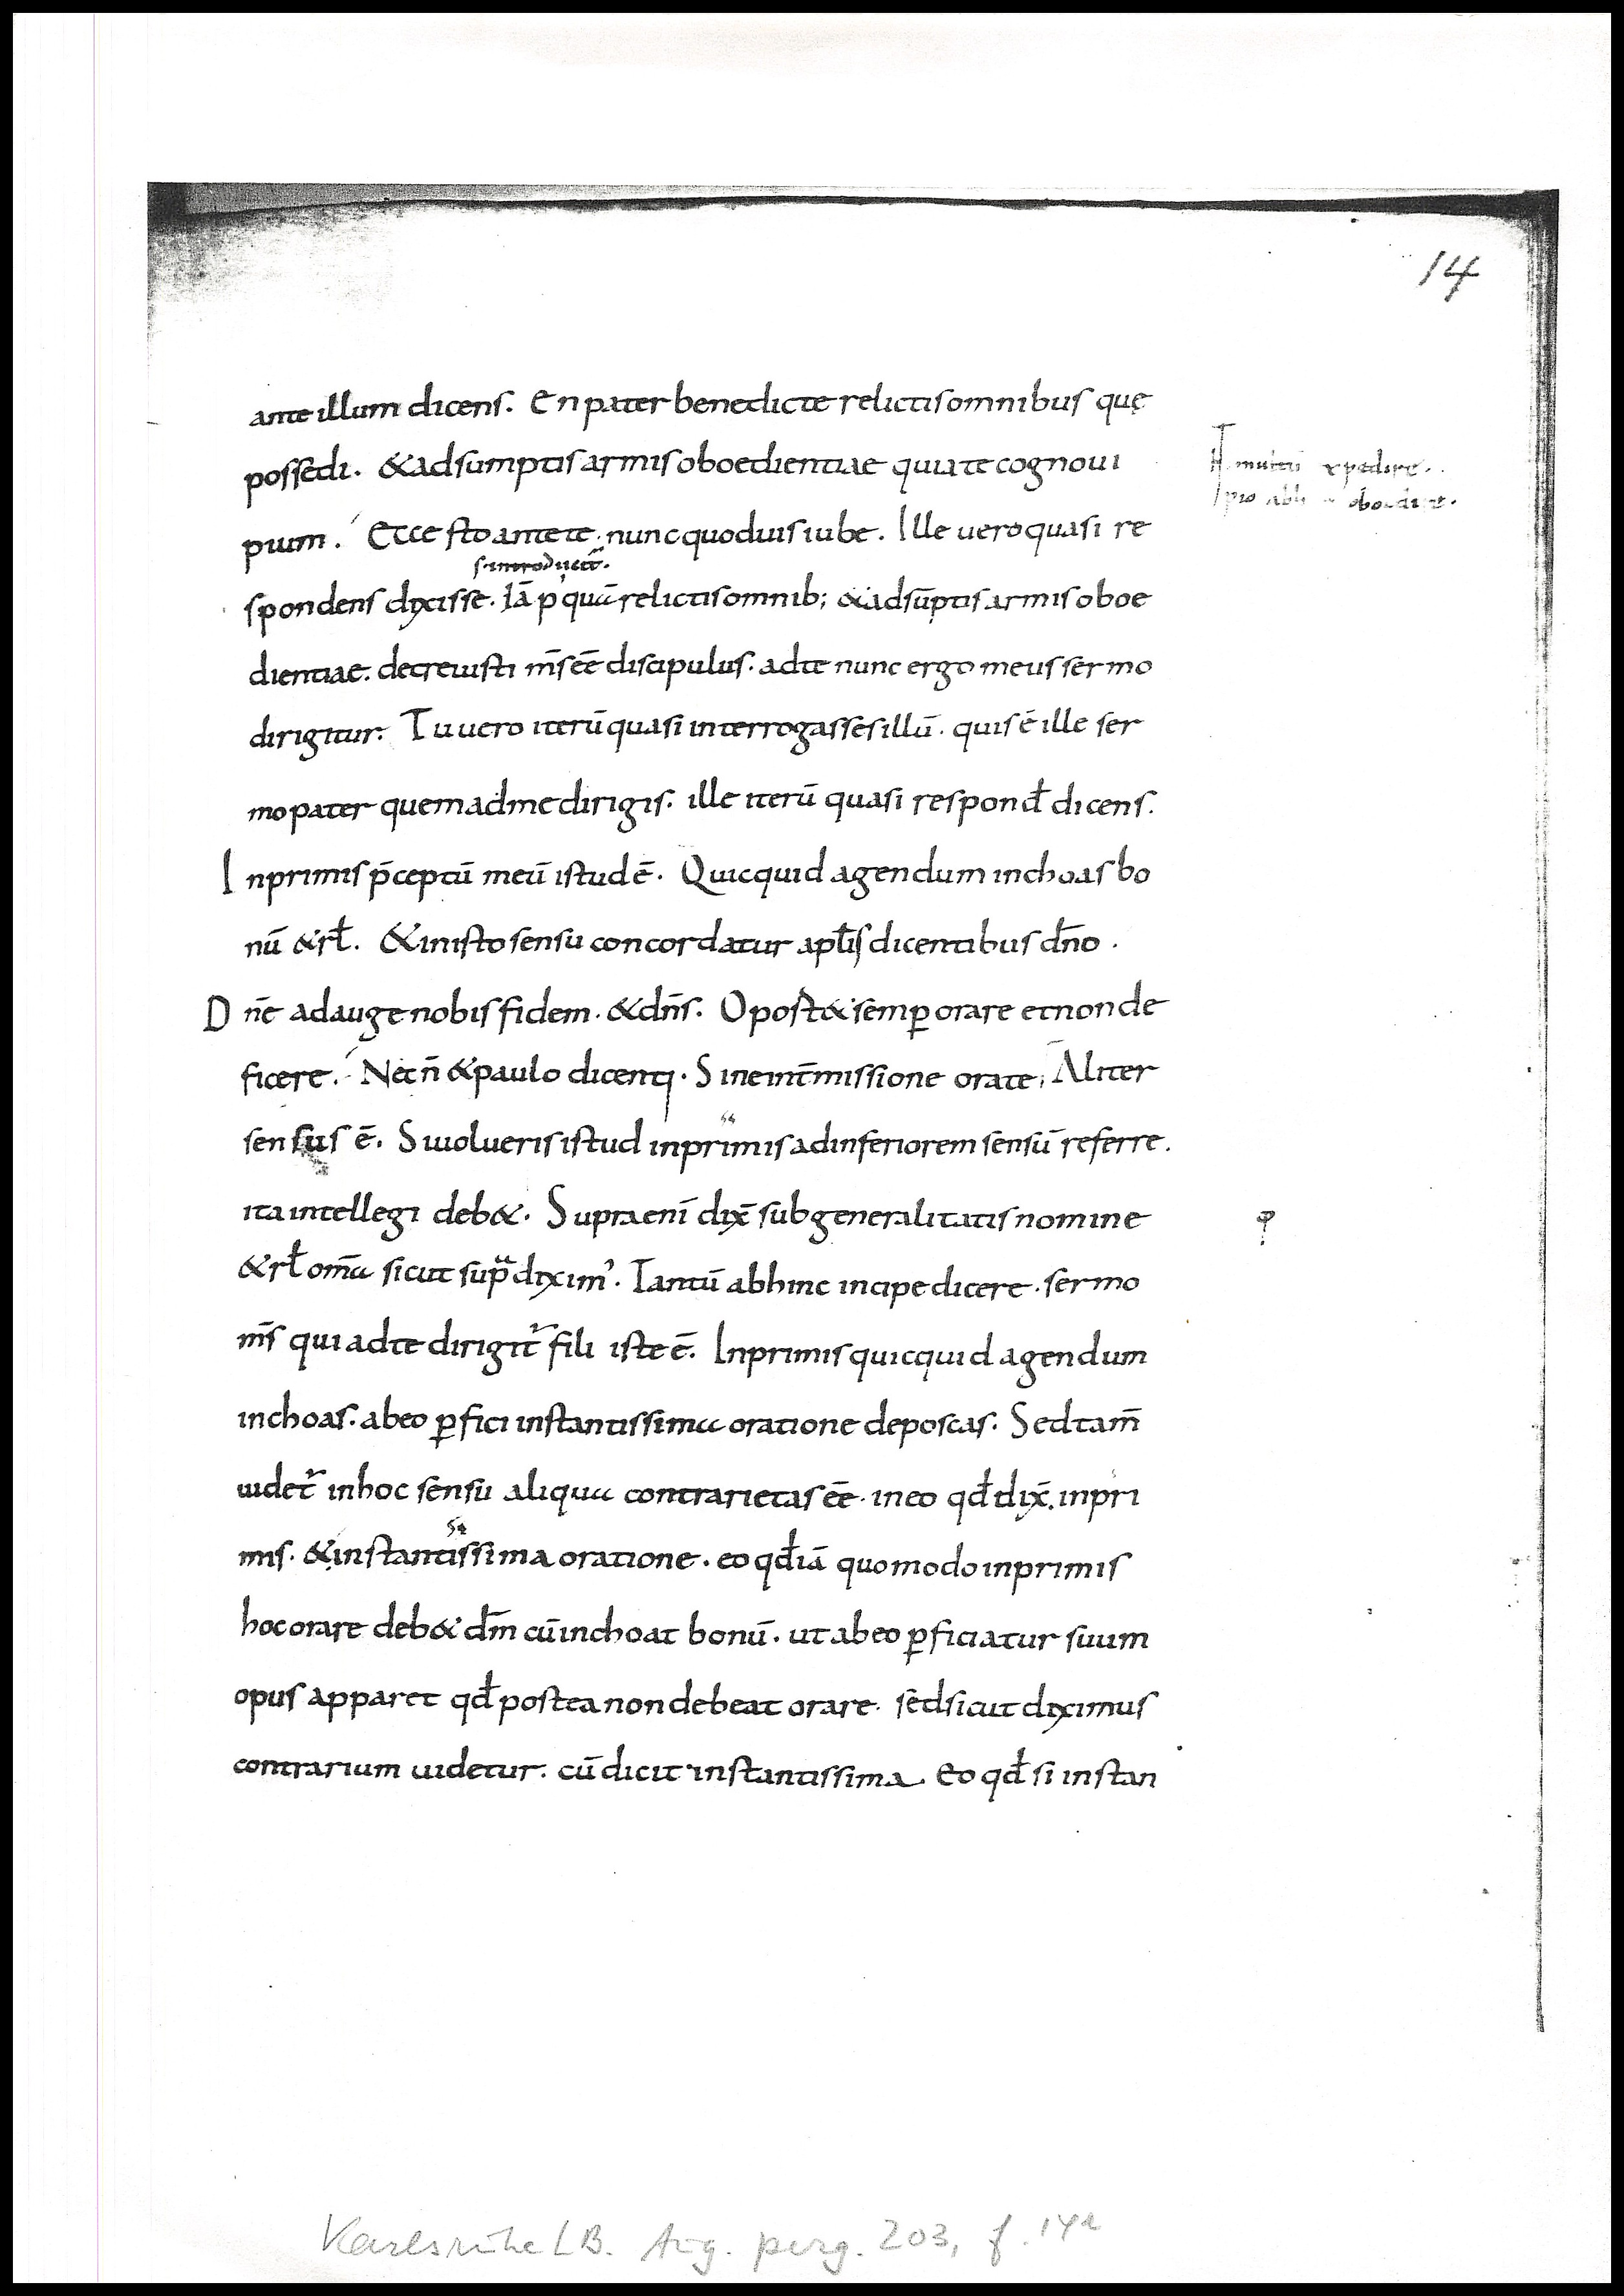 14
ante illum dicens. En pater benedicte relictis omnibus quę
possedi. & adsumptis armis oboedientiae quia te cognoui
pium. Ecce sto ante te. nunc quod uis iube. Ille uero quasi re
spondens dixisse. Iā p quā relictis omnib; & adsūptis armis oboe
dientiae. decreuisti m̄s eē discipulus. ad te nunc ergo meus sermo
dirigitur. Tu uero iterū quasi interrogasses illū. quis ē ille ser
mo pater quem ad me dirigis. ille iterū quasi respond̄ dicens.
Inprimis p̄ceptū meū istud ē. Quicquid agendum inchoas bo
nū &rł. & in isto sensu concordatur apłis dicentibus dn̄o.
Dn̄e adauge nobis fidem. & dn̄s. Oport& semꝑ orare et non de
ficere. Nec n̄ & paulo dicenti. Sine int̄missione orate; Aliter
sensus ē. Si uolueris istud inprimis ad inferiorem sensū referre.
ita intellegi deb&. Supra enī dix̄ sub generalitatis nomine
&rł om̄a sicut supra diximʼ. Tantū abhinc incipe dicere. sermo
m̄s qui ad te dirigit̄ fili iste ē. Inprimis quicquid agendum
inchoas. ab eo ꝑfici instantissima oratione deposcas. Sed tam̄
uidet̄ in hoc sensu aliqua contrarietas eē. in eo qd̄ dix̄. inpri
mis. & instantissima oratione. eo qd̄ iā quomodo inprimis
hoc orare deb& dm̄ cū inchoat bonū. ut ab eo ꝑficiatur suum
opus apparet qd̄ postea non debeat orare. sed sicut diximus
contrarium uidetur. cū dicit instantissima. Eo qd̄ si instan
Karlsruhe LB. Aug. perg. 203, f. 14r